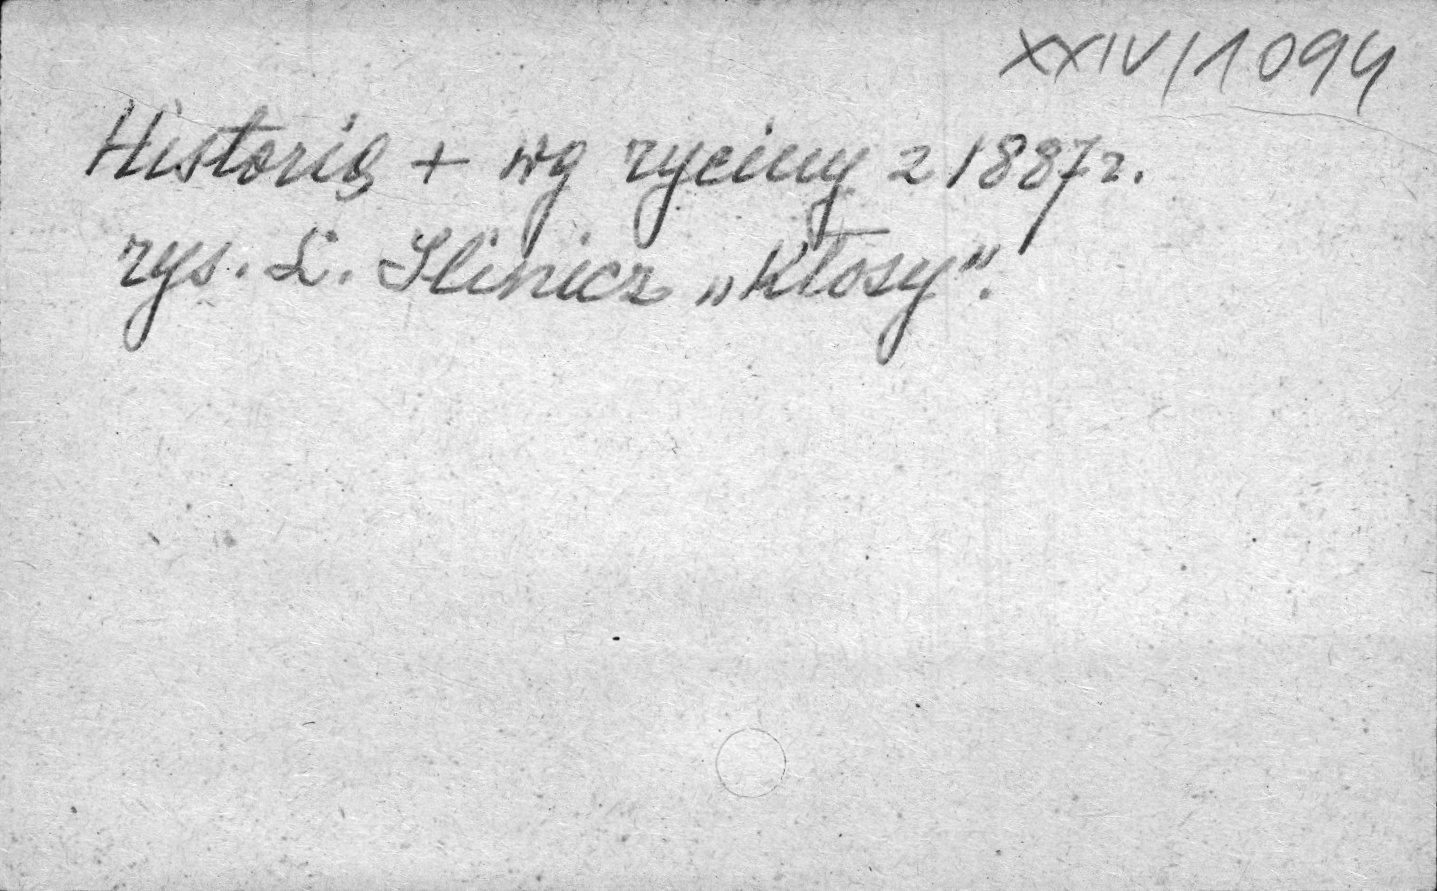 XXIV/1094
Historią + wg ryciny z 1887r.
rys. L. Ilinicz „Kłosy".